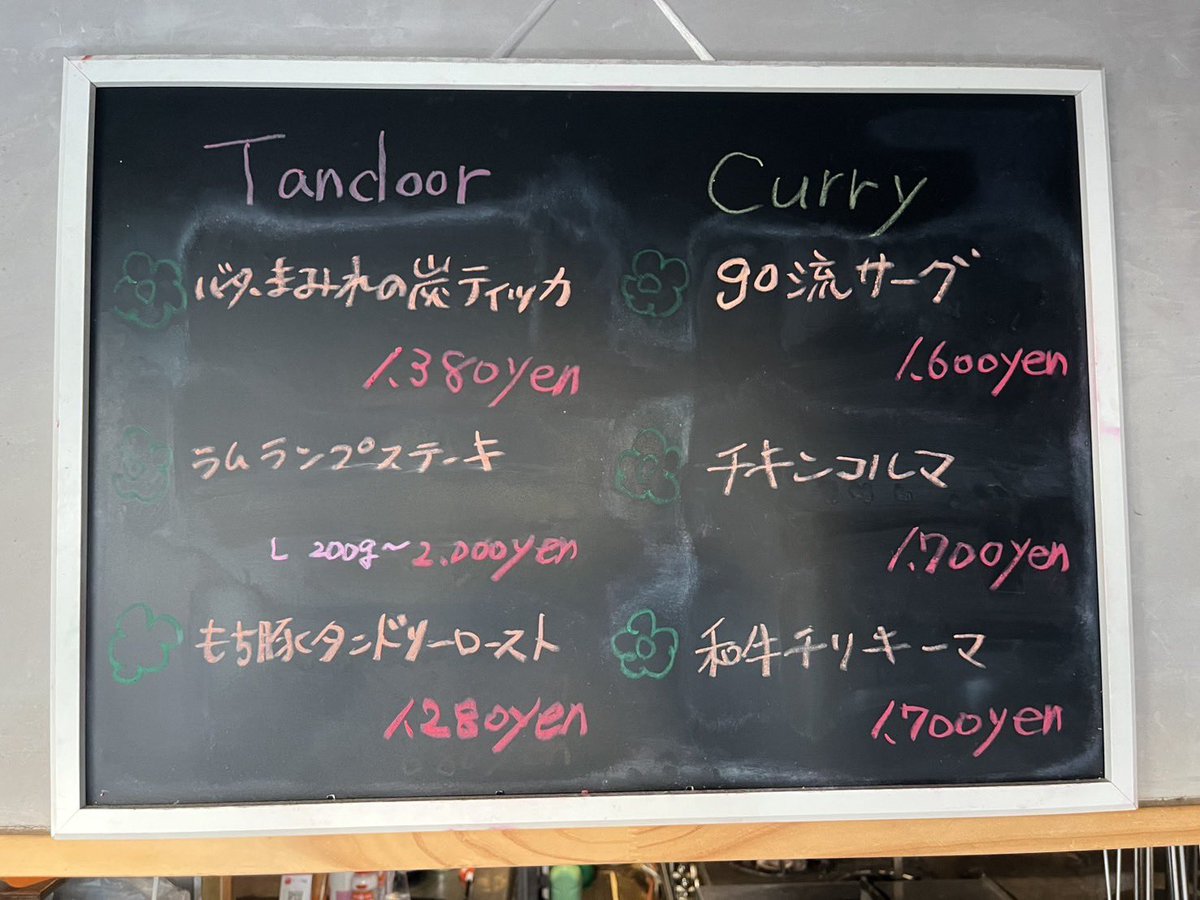 Tandoor
バターまみれの炭ティッカ
1.380yen
ラムランプステーキ
L 200g〜2.000yen
もち豚くタンドリーロースト
1.280yen
Curry
go流サーグ
1.600yen
チキンコルマ
1.700yen
和牛チリキーマ
1.700yen